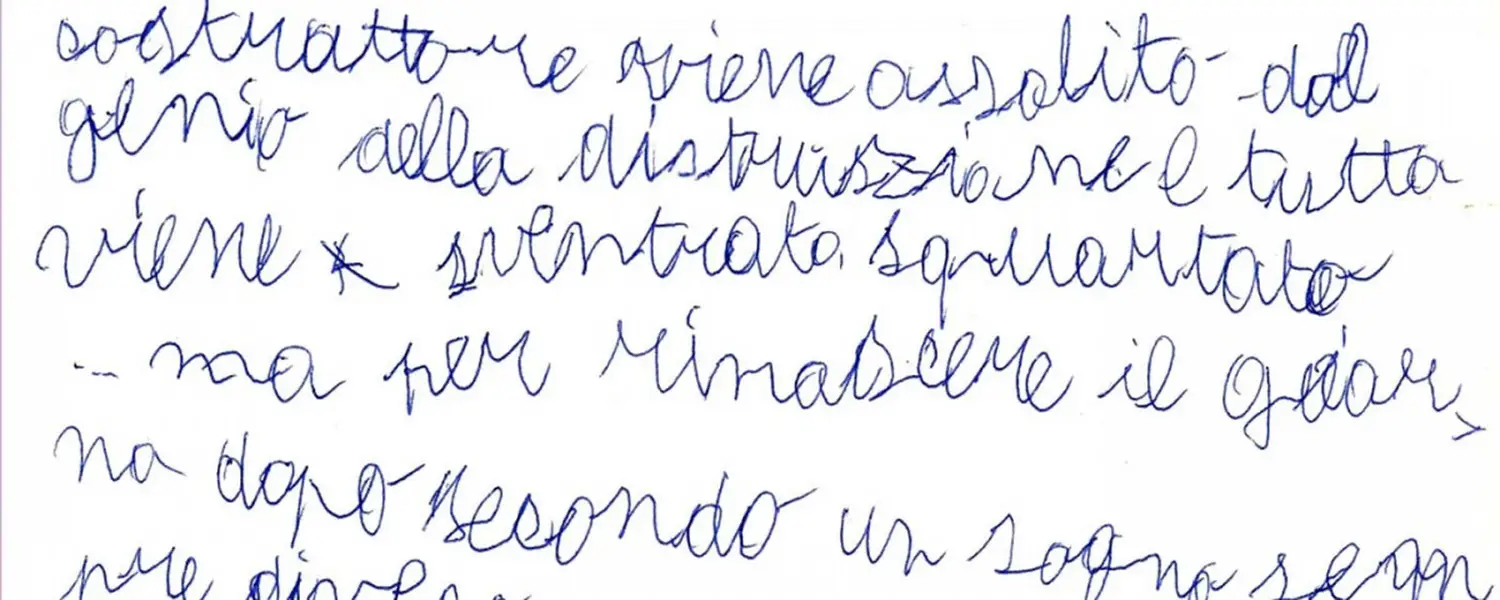 costruttore viene assalito dal
genio della distruzione e tutto
viene sventrato squartato
... ma per rinascere il gior
no dopo secondo un sogno sem
pre divers